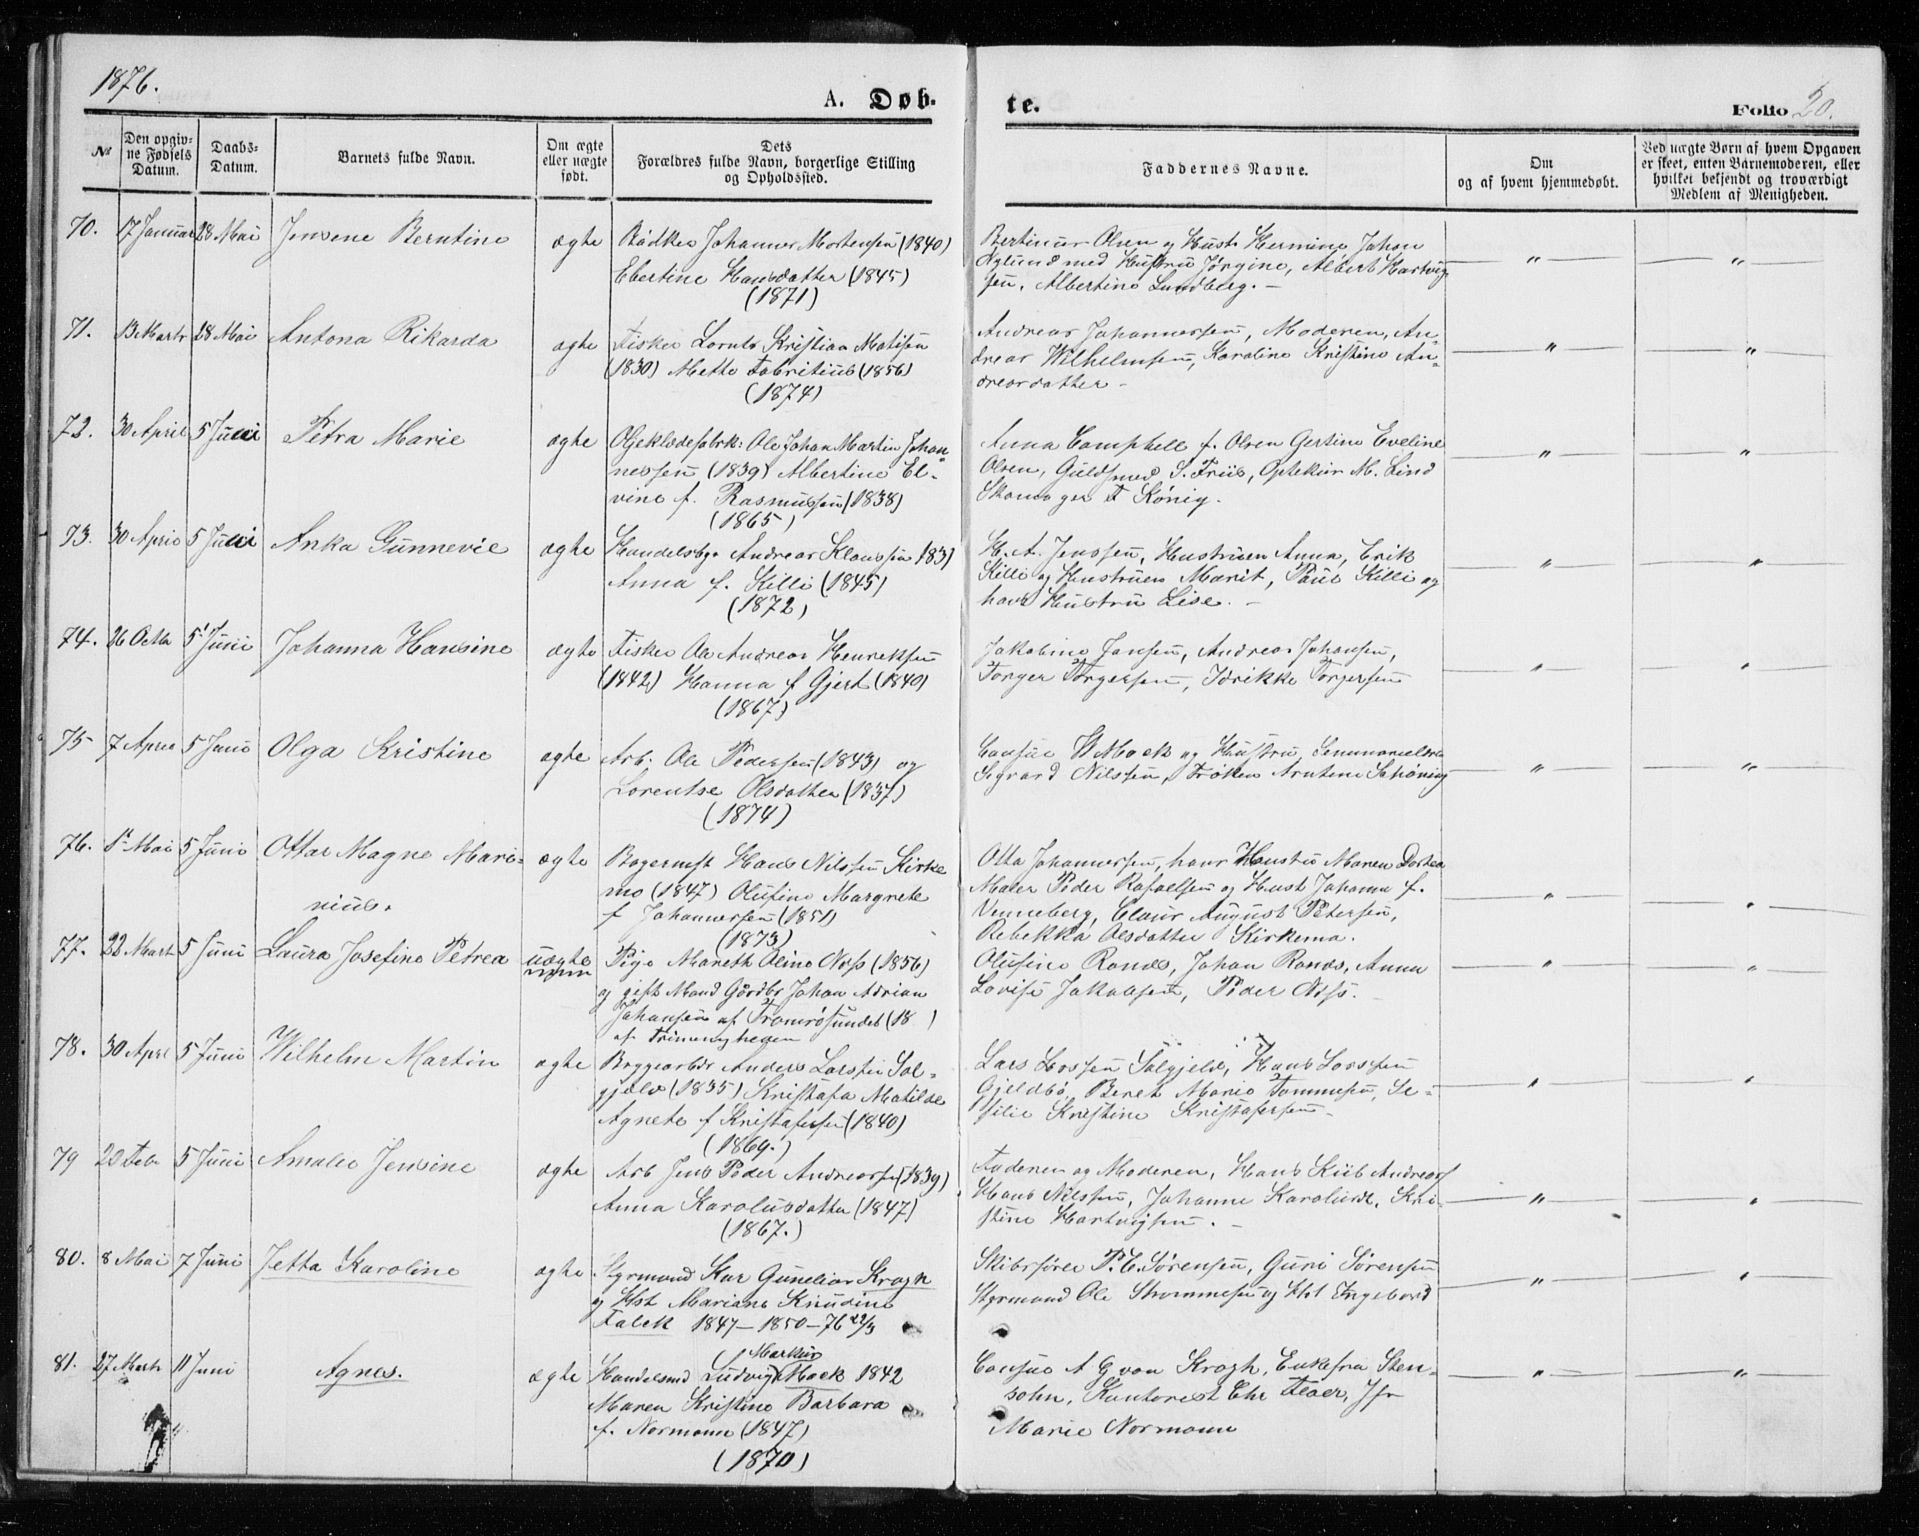 1876.
A. Døb-
te.
Folio 20.
№
Den opgiv-
ne Fødsels
Datum.
Daabs-
Datum.
Barnets fulde Navn.
Om ægte
eller uægte
født.
Dets
Forældres fulde Navn, borgerlige Stilling
og Opholdssted.
Faddernes Navne.
Om
og af hvem hjemmedøbt.
Ved uægte Børn af hvem Opgaven
er skeet, enten Barnemoderen, eller
hvilket bekjendt og troværdigt
Medlem af Menigheden.
70. 17 Januar 28 Mai Jensene Berntine ægte Bødker Johannes Mortensen (1840)
Ebertine Hansdatter (1845)
(1871)
Bertinus Olsen og Hust. Hermine, Johan
Nylund med Hustru Jørgine, Albert Hartvig
sen, Albertine Lundberg. -
71. 13 Marts 28 Mai Antona Rikarda ægte Fisker Lornts Kristian Matisen
(1830) Mette Fabritius (1856)
(1874)
Andreas Johannessen, Moderen, An-
dreas Wilhelmsen, Karoline Kristine An-
dreasdatter -
72. 30 April 5 Juni Petra Marie ægte Oljeklædefabrk: Ole Johan Martin Johan-
nessen (1839) Albertine El-
vine f. Rasmussen (1838)
(1865)
Anna Campbell f. Olsen Gertine Eveline
Olsen, Guldsmed S. Friis, Optekür M. Lind
Skomager F König.
73. 30 April 5 Juni Anka Gunnevie ægte Handelsbg. Andreas Klaussen 183)
Anna f. Killi (1845)
(1872)
H. A. Jenssen, Hustruen Anna, Erik
Killi og Hustruen Marit, Paul Killi og
hans Hustru Lise. -
74. 26 Octb 5' Juni Johanna Hansine ægte Fisker Ole Andreas Henriksen
(1842) Hanna f Gjert (1840)
(1867)
Jakobine Jansen, Andreas Johansen,
Torger Torgersen, Idrikke Torgersen
75 7 April 5 Juni Olga Kristine ægte Arb. Ole Pedersen (1843) og
Lorentse Olsdatter (1837)
(1874)
Consul W Mack og Hustru, Seminarielærer
Sigvard Nilssen, Frøken Arntine Schöning
76. 1' Mai 5 Juni Ottar Magne Mari-
nius.
ægte Bagermst Hans Nilssen Kirke
mo (1847) Olufine Margrete
f Johannessen (1851)
(1873)
Otto Johannessen, hans Hustru Maren Dortea
Maler Peder Rafaelsen og Hust Johanna f.
Venneberg, Claus August Petersen,
Rebekka Olsdatter Kirkemo.
77. 22 Mart 5 Juni Laura Josefine Petrea uægte Pige Mareth Oline Ness (1856)
og gift Mand Gårdbr Johan Adrian
Johansen af Tromsøsundet (18 )
af Frimenigheden
Olufine Rands, Johan Rands, Anna
Lovise Jakobsen, Peder Ness.
78. 30 April 5 Juni Wilhelm Martin ægte Bryggearbdr Anders Larsen Sol-
gjeld (1835) Kristafa Matilde
Agnete f Kristafersen (1840)
(1869.)
Lars Larssen Solgjeld, Hans Larssen
Gjeldbø, Beret Marie Tommesen, Se-
silie Kristine Kristafersen -
79 22 Feb. 5 Juni Amalie Jensine ægte Arb Jens Peder Andreassen (1839)
Anna Karolusdatter (1847)
(1867.)
Faderen og Moderen, Hans Kiil Andreass
Hans Nilssen, Johanne Karolusd, Kri-
stine Hartvigsen. -
80. 8 Mai 7 Juni Jetta Karoline ægte Styrmand Kar Gunelius Krogh
og Hst Mariane Knudine
Falck 1847 - 1850 - 76 22/3
Skibsfører P. C. Sørensen, Guri Sørensen
Styrmand Ole Strømmesen og Hst Ingebord
81. 27 Marts 11 Juni Agnes. ægte Handelsmd Ludvig Markus Mack 1842
Maren Kristine Barbara
f. Normann (1847)
(1870)
Consul A G von Krogh, Enkefru Sten-
sohn, Kantorist Chr Floer, Jfr
Marie Normann